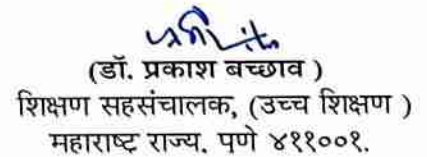 (डॉ. प्रकाश बच्छाव )
शिक्षण सहसंचालक, (उच्च शिक्षण )
महाराष्ट्र राज्य. पुणे ४११००१.